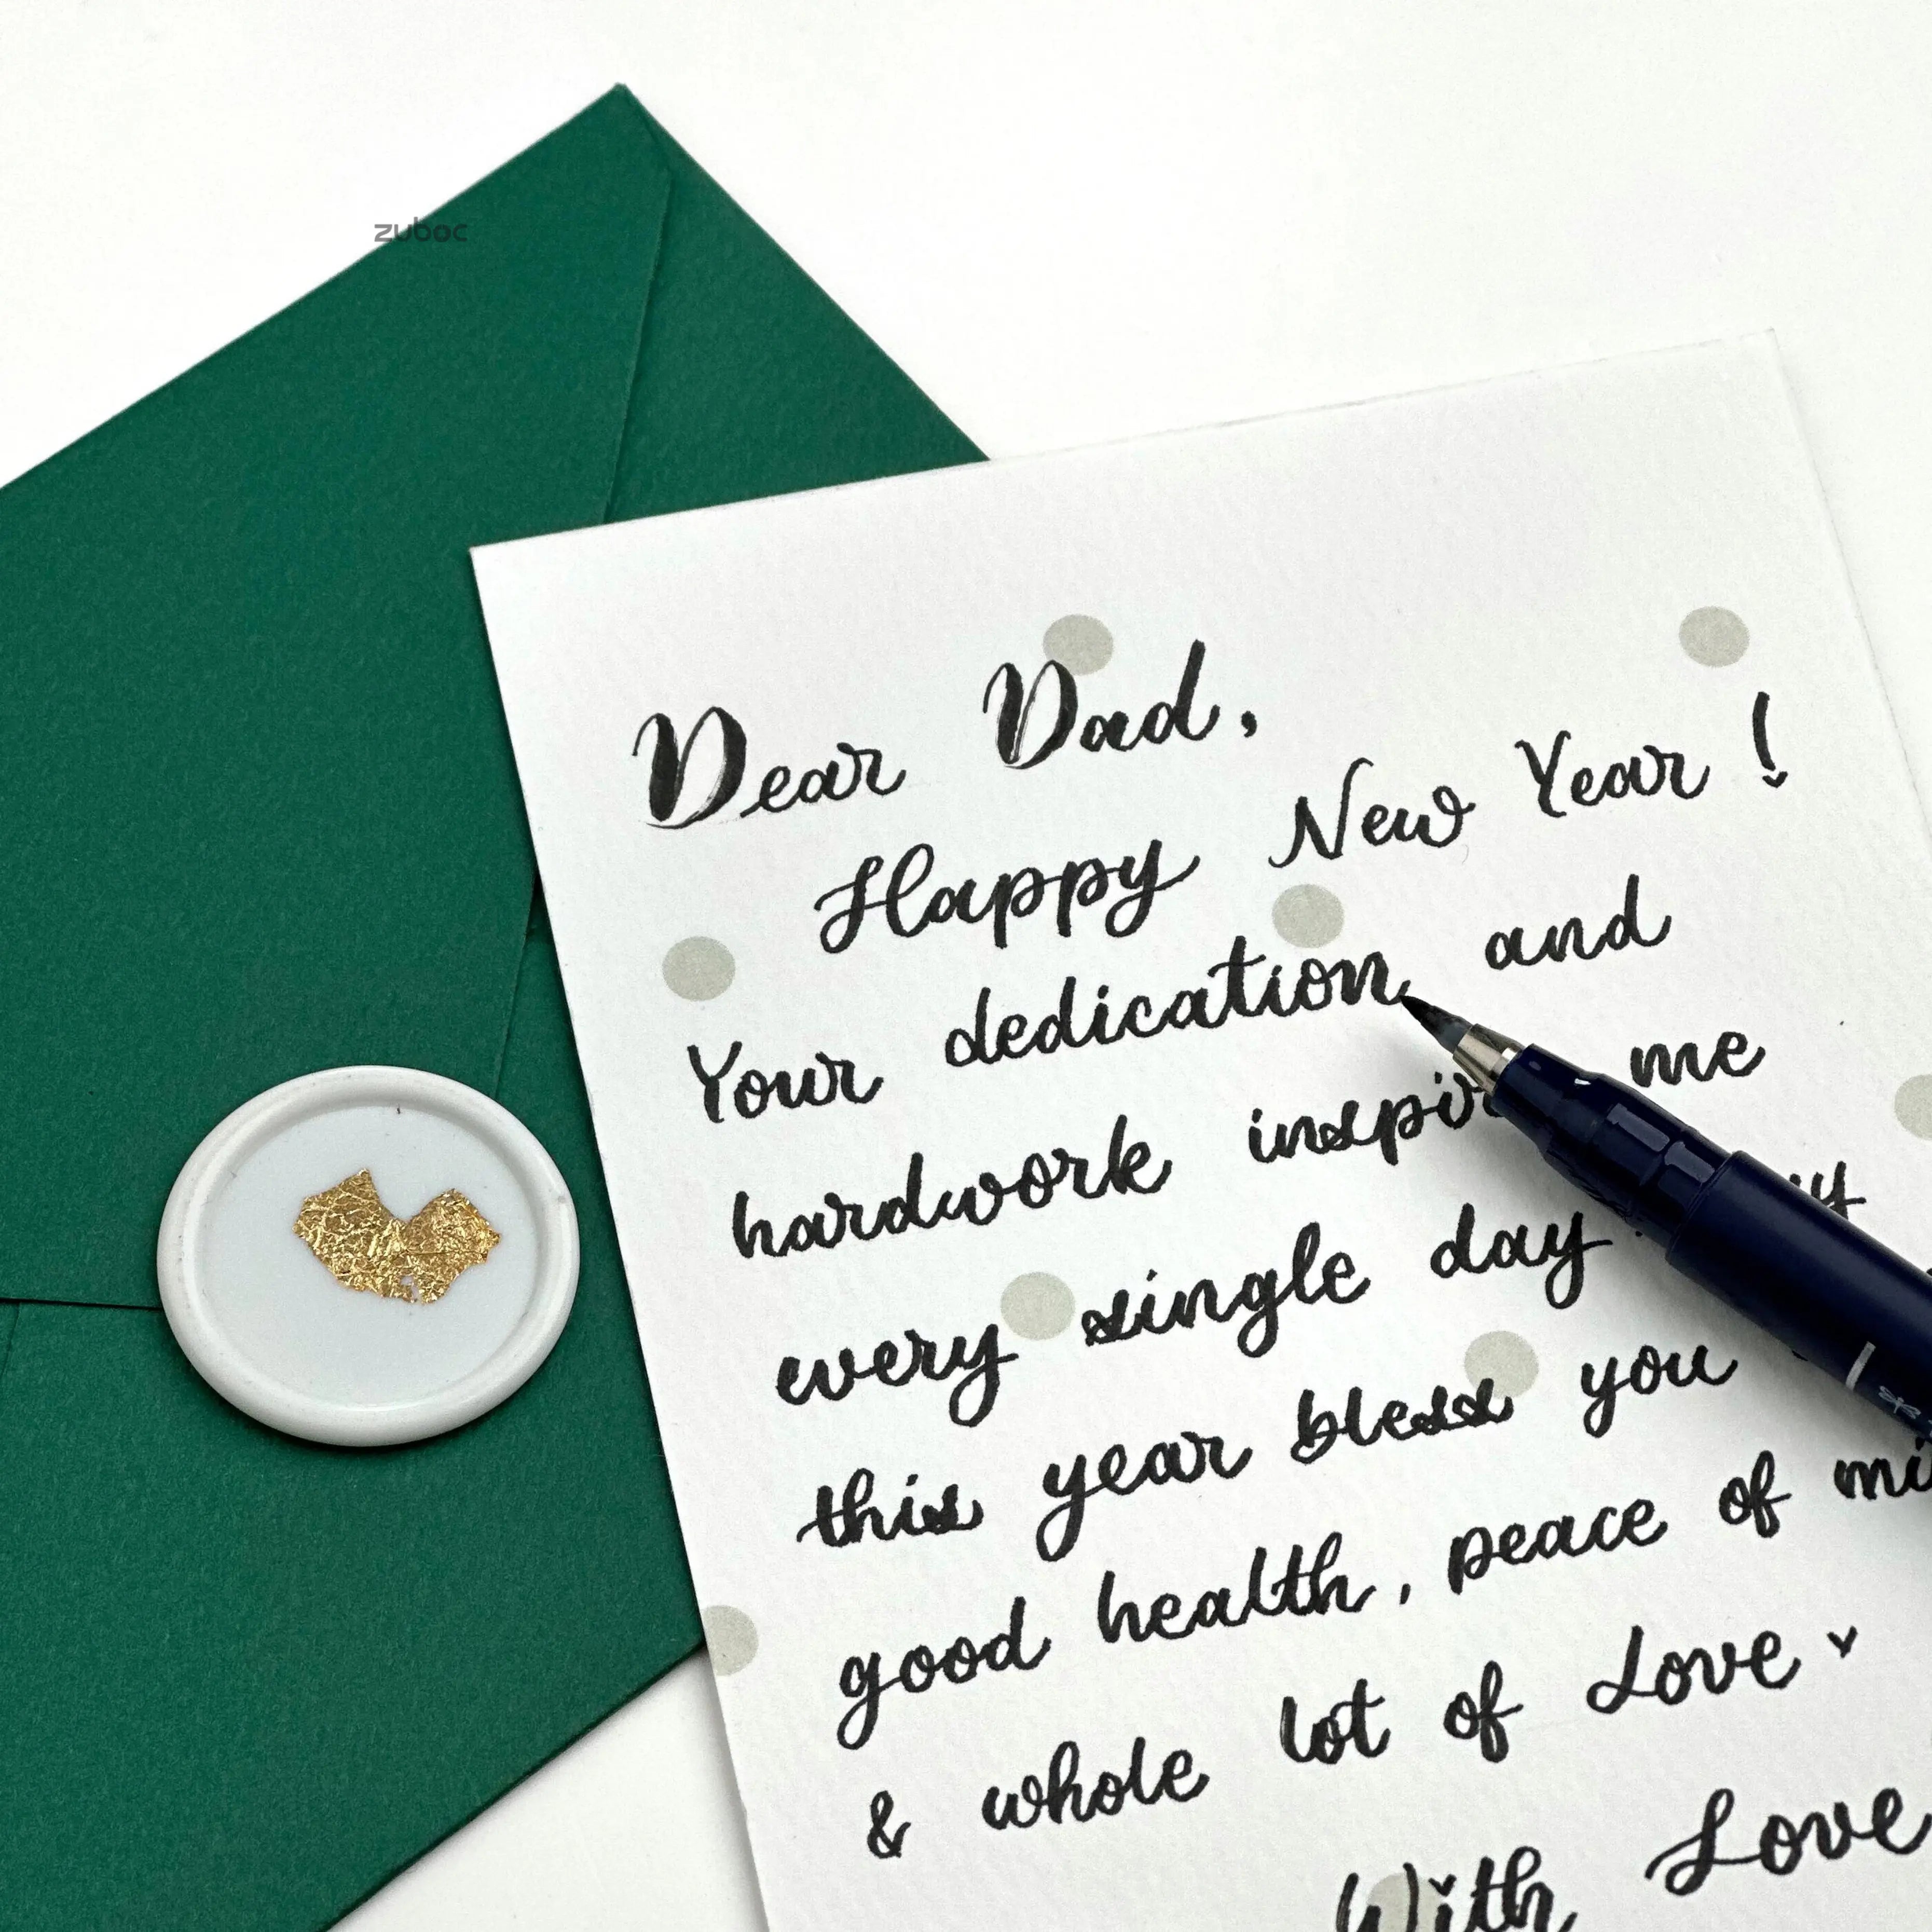 zuboc
Dear Dad,
Happy New Year!
Your dedication and
hardwork me
every single day
this year bless you
good health, peace of
& whole lot of Love
With Love